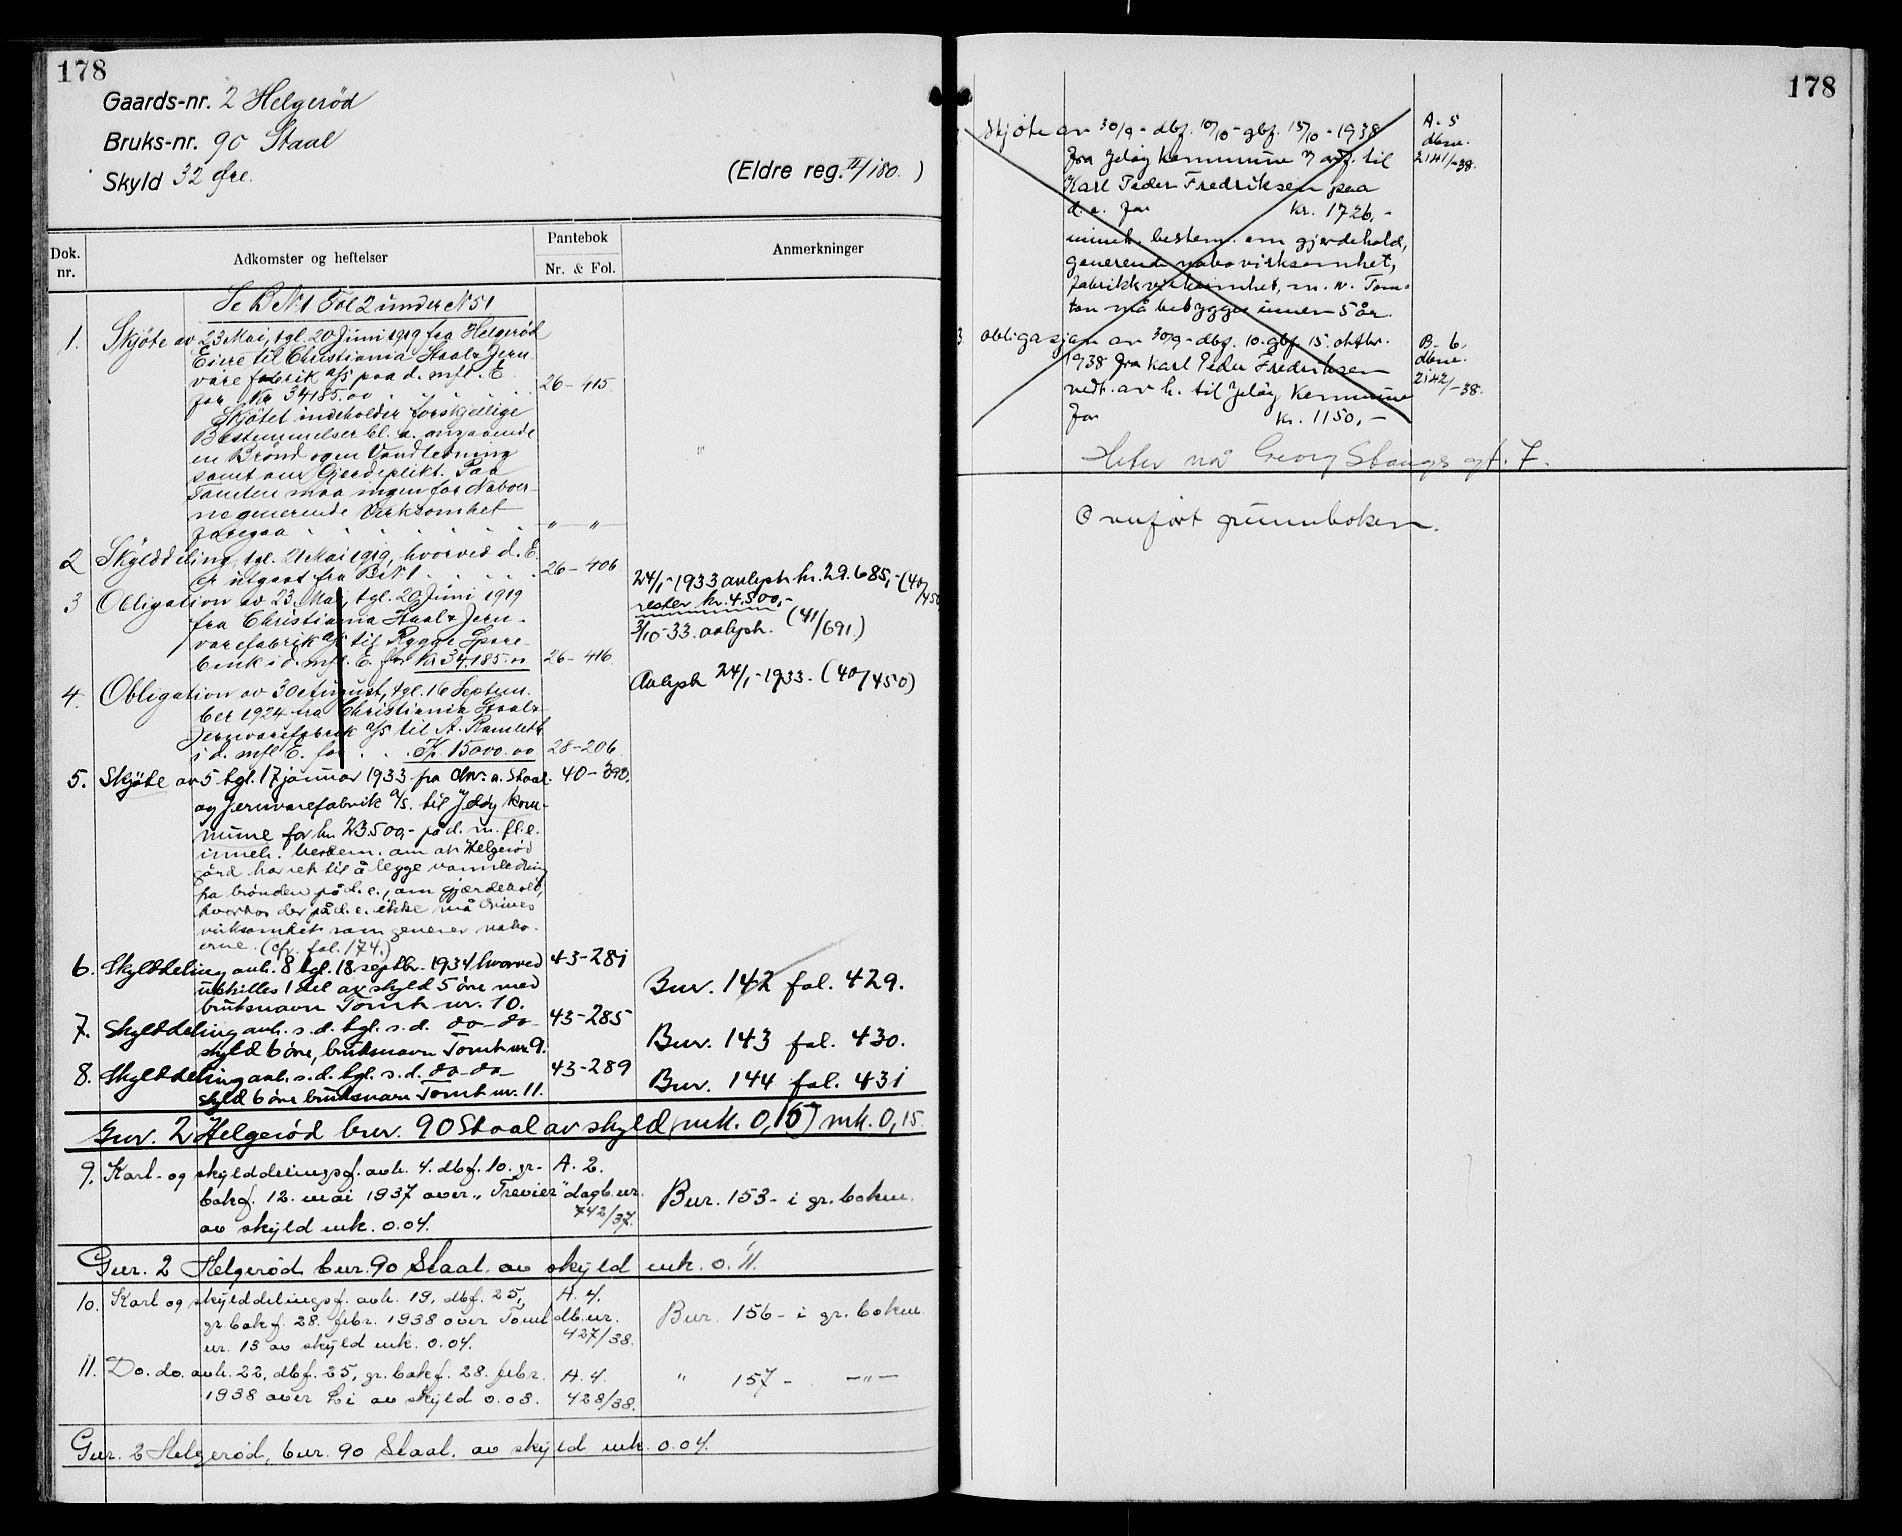 178
Gaards-nr. 2 Helgerød
Bruks-nr. 90 Staal
Skyld 32 Øre.
(Eldre reg. II/180. )
Dok. nr.
Adkomster og heftelser
Pantebok
Nr. & Fol.
Anmerkninger
Se B № 1 Fol 2 under № 51
1. Skjøte av 23 Mai, tgl. 20 Juni 1919 fra Helgerød
Eiere til Christiania Staal & Jern-
varefabrik a/s paa d. mfl. E.
for Kr 34185.00 . . . . 26-415
Skjøtet indeholder forskjellige
Bestemmelser bl. a. angaaende
en Brønd og en Vandledning
samt om Gjerdeplikt. Paa
Tomten maa ingen for Naboer-
ne generende Virksomhet
foregaa . . . . . . „ — „
2 Skylddeling, tgl. 21 Mai 1919, hvorved d. E.
er utgaat fra B № 1 . . . . 26-406
3 Obligation av 23. Mai, tgl. 20 Juni 1919
fra Christiania Staal & Jern-
varefabrik a/s til Rygge Spare-
bank i d. mfl. E. for Kr 34185.00 26-416
24/1-1933 avlyst kr. 29.685,- (40/450
rester kr. 4.500,-
3/10-33. avlyst. (41/691.)
4. Obligation av 30 August, tgl. 16 Septem-
ber 1924 fra Christiania Staal &
Jernvarefabrik a/s til A. Ramleth
i d. mfl E. for . . Kr. 15000.00 28-206
Avlyst 24/1-1933. (40/450)
5. Skjøte av 5 tgl. 17 januar 1933 fra Chr.a. Staal- 40-390.
og Jernvarefabrik A/S. til Jeløy kom-
mune for kr. 23.500,- på d. m. fl. e.
inneh. bestem. om at Helgerød
gård har ret til å legge vannledning
fra brønden på d. e., om gjærdehold,
hvorhos der på d. e. ikke må drives
virksomhet som generer nabo-
erne. (cfr. fol. 174.)
6. Skylddeling avh. 8 tgl. 18 septbr. 1934 hvorved 43-281
utskilles 1 del av skyld 5 øre med
bruksnavn Tomt nr. 10.
Bnr. 142 fol. 429.
7. Skylddeling avh. s. d. tgl. s. d. do - do - 43-285
skyld 6 øre, bruksnavn Tomt nr. 9.
Bnr. 143 fol. 430.
8. Skylddeling avh. s. d. tgl. s. d. do - do - 43-289
skyld 6 øre bruksnavn Tomt nr. 11.
Bnr. 144 fol. 431
Gnr. 2 Helgerød bnr. 90 Staal av skyld (mk. 0,15) mk. 0,15.
9. Kart- og skylddelingsf. avh. 4. dbf. 10. gr- A. 2.
bokf. 12. mai 1937 over „Trevier" dagb.nr.
av skyld mk. 0.04. 742/37.
Bnr. 153 - i gr. boken.
Gnr. 2 Helgerød bnr. 90 Staal. av skyld mk. 0.11.
10. Kart og skylddelingsf. avh. 19, dbf. 25, A. 4.
gr.bokf. 28. febr. 1938 over Tomt db.nr.
nr. 13 av skyld mk. 0.04. 427/38.
Bnr. 156 - i gr. boken.
11. Do. do. avh. 22, dbf. 25, gr. bokf. 28. febr. A. 4.
1938 over Li av skyld 0.03. 428/38.
" 157 - —"—
Gnr. 2 Helgerød, bnr. 90 Staal. av skyld mk. 0.04.
178
Skjøte av 30/9 - dbf. 10/10 - gbf. 15/10 - 1938 A. 5
fra Jeløy kommune v/ ordf. til dbnr.
Karl Peder Fredriksen paa 2141/-38.
d. e. for kr. 1726,-
inneh. bestem. om gjerdehold,
generende nabovirksomhet,
fabrikkvirksomhet, m. v. Tom-
ten må bebygges innen 5 år.
3. Obligasjon av 30/9 - dbf. 10. gbf. 15. oktbr. B. 6.
1938 fra Karl Peder Fredriksen dbnr.
vedt. av h. til Jeløy Kommune 2142/-38.
for kr. 1150,-
Heter nå Georg Stangs gt. 7.
Overført grunnboken.